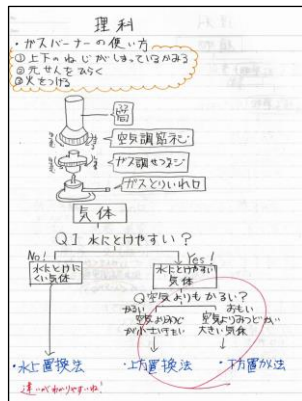 理科
・ガスバーナーの使い方
①上下のねじがしまっているかみる
②元せんをひらく
③火をつける
管
空気調節ネジ
ガス調せつネジ
ガスとりいれ口
気体
Q1 水にとけやすい？
No!
Yes!
水にとけにくい気体
水にとけやすい気体
Q空気よりもかるい？
かるい
おもい
空気よりみつど
空気よりみつどが
大きい気体
・水上置換法
・上方置換法
・下方置かん法
違いがわかりやすいね!